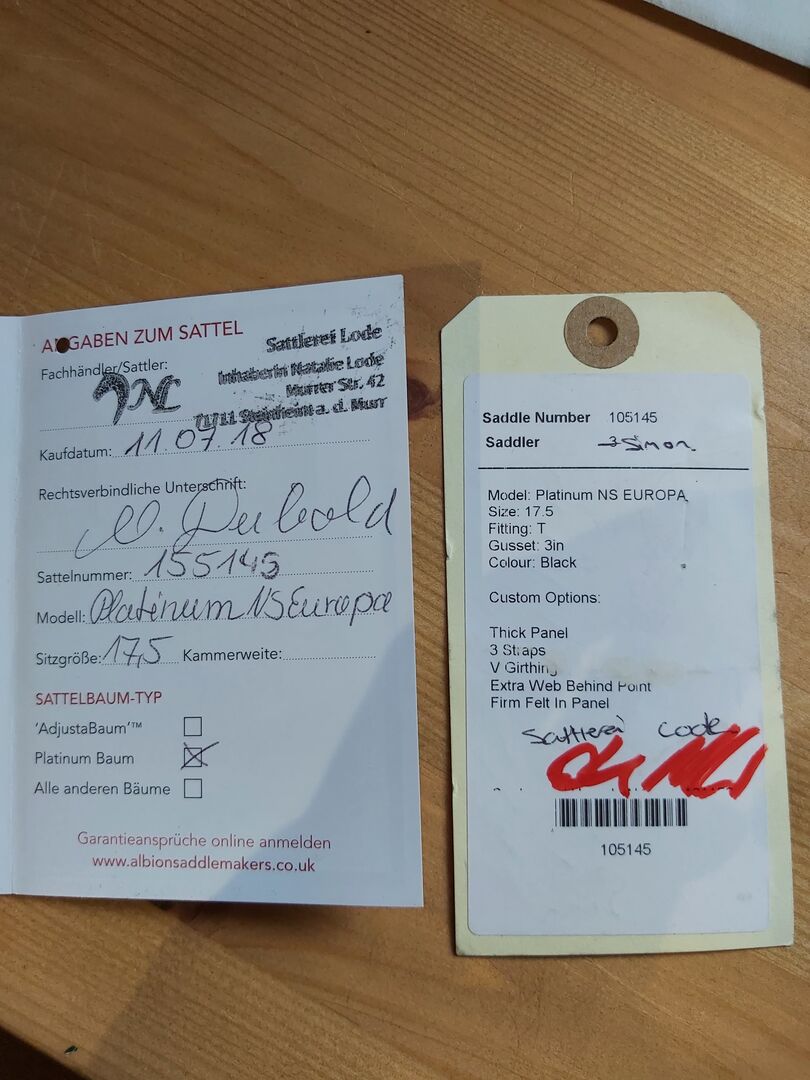 ANGABEN ZUM SATTEL
Fachhändler/Sattler:
Sattlerei Lode
Inhaberin Natalie Lode
Murrer Str. 42
71711 Steinheim a. d. Murr
NL
Kaufdatum: 11.07.18
Rechtsverbindliche Unterschrift:
Sattelnummer: 155145
Modell: Platinum NS Europa
Sitzgröße: 17,5 Kammerweite:
SATTELBAUM-TYP
'AdjustaBaum'™
Platinum Baum
Alle anderen Bäume
Garantieansprüche online anmelden
www.albionsaddlemakers.co.uk
Saddle Number 105145
Saddler Simon
Model: Platinum NS EUROPA
Size: 17.5
Fitting: T
Gusset: 3in
Colour: Black
Custom Options:
Thick Panel
3 Straps
V Girthing
Extra Web Behind Point
Firm Felt In Panel
Sattlerei Lode
105145